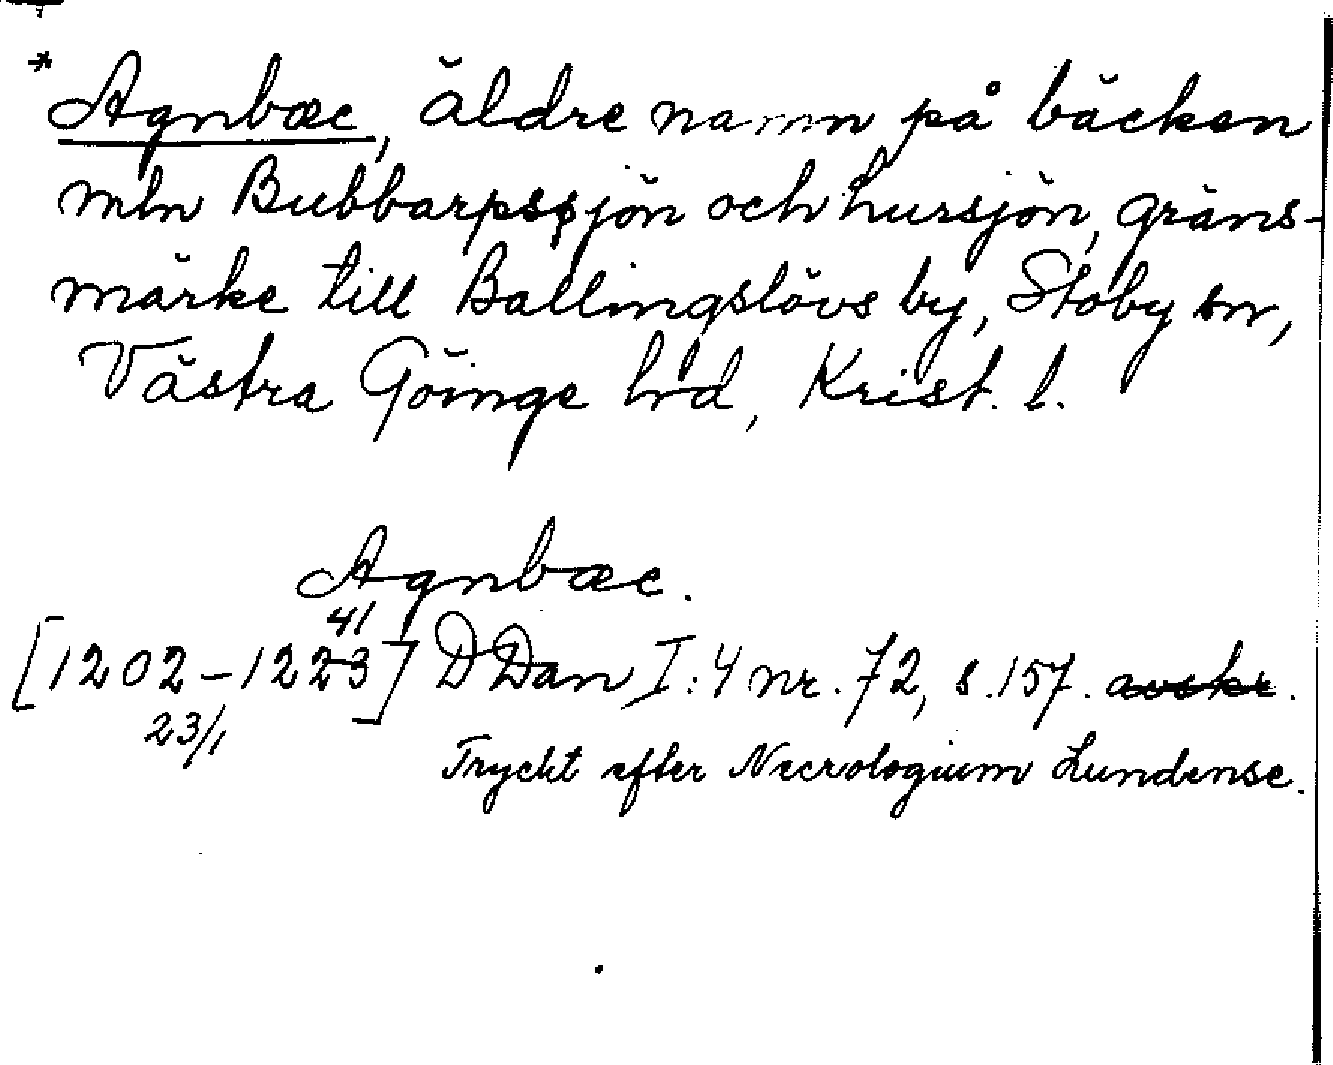 * Agnbæc, äldre namn på bäcken
mln Bubbarpssjön och Lursjön, gräns-
märke till Ballingslövs by, Stoby sn,
Västra Göinge hd, Krist. l.
Agnbæc.
41
[1202-1223] DDan I:4 nr. 72, s. 157. avskr.
23/1
Tryckt efter Necrologium Lundense.